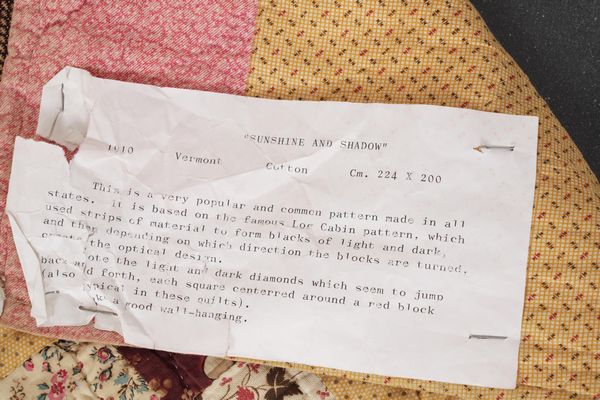 "SUNSHINE AND SHADOW"
Vermont Cotton Cm. 224 X 200
This is a very popular and common pattern made in all
states. It is based on the famous Log Cabin pattern, which
used strips of material to form blacks of light and dark,
and then depending on which direction the blocks are turned,
the optical design.
the light and dark diamonds which seem to jump
back d forth, each square centerred around a red block
(also ypical in these quilts).
a good wall-hanging.